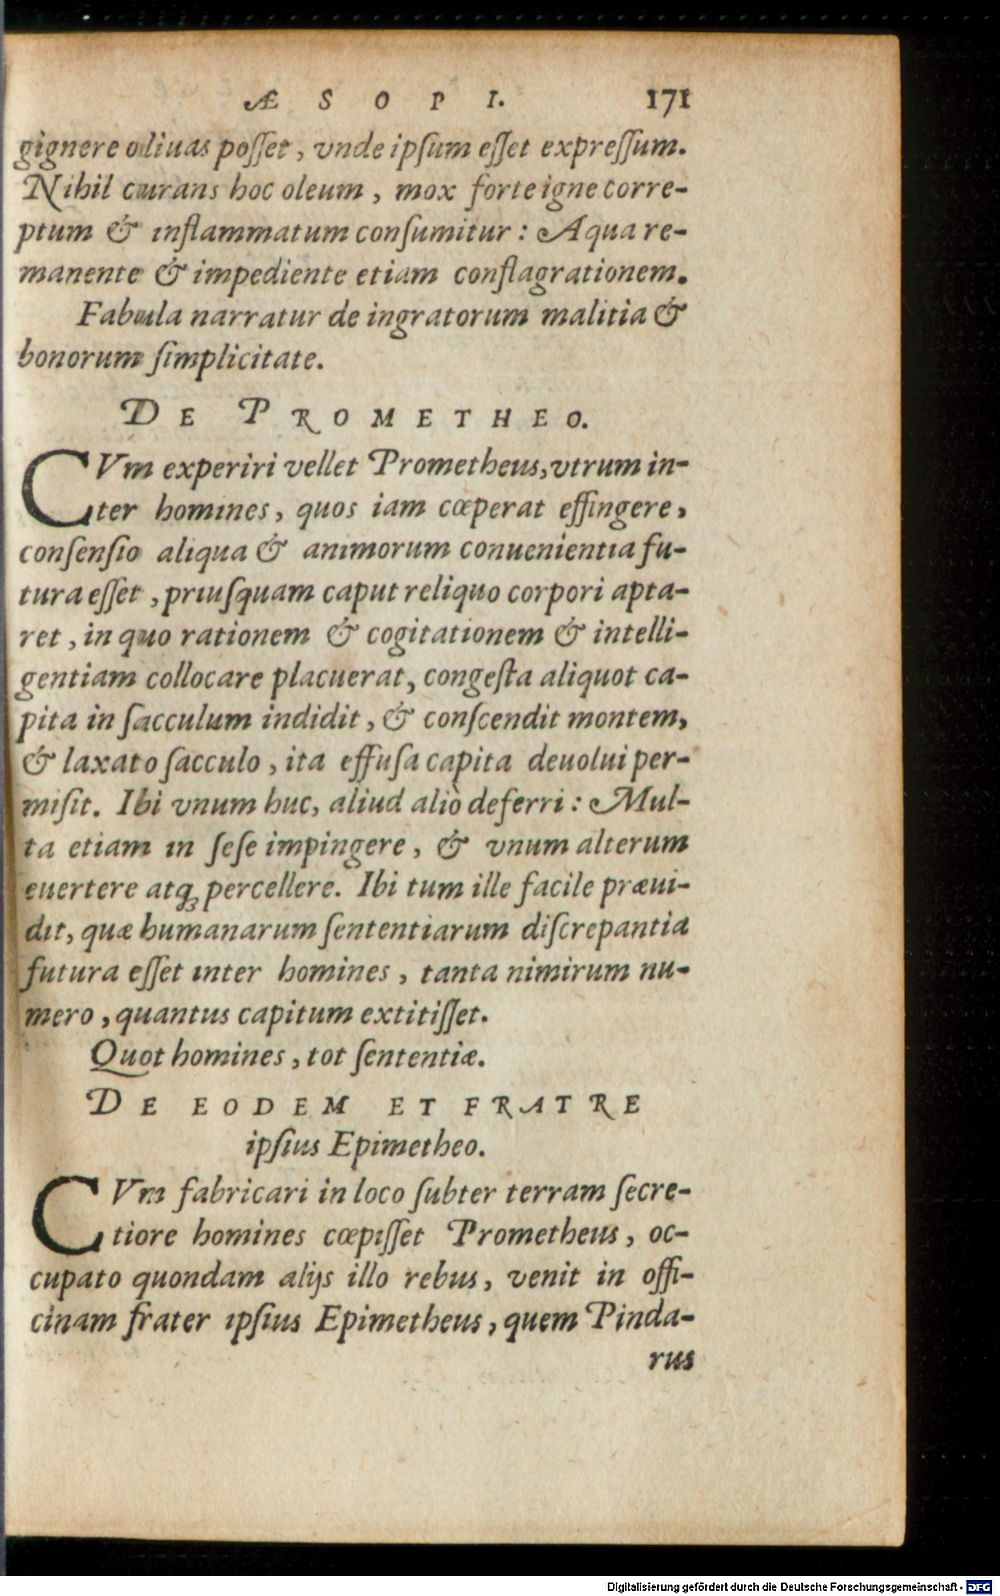 ÆSOPI. 171
gignere oliuas posset, vnde ipsum esset expressum.
Nihil curans hoc oleum, mox forte igne corre-
ptum & inflammatum consumitur: Aqua re-
manente & impediente etiam conflagrationem.
Fabula narratur de ingratorum malitia &
bonorum simplicitate.
DE PROMETHEO.
CVm experiri vellet Prometheus, vtrum in-
ter homines, quos iam cœperat effingere,
consensio aliqua & animorum conuenientia fu-
tura esset, priusquam caput reliquo corpori apta-
ret, in quo rationem & cogitationem & intelli-
gentiam collocare placuerat, congesta aliquot ca-
pita in sacculum indidit, & conscendit montem,
& laxato sacculo, ita effusa capita deuolui per-
misit. Ibi vnum huc, aliud aliò deferri: Mul-
ta etiam in sese impingere, & vnum alterum
euertere atq; percellere. Ibi tum ille facile præui-
dit, quæ humanarum sententiarum discrepantia
futura esset inter homines, tanta nimirum nu-
mero, quantus capitum extitisset.
Quot homines, tot sententiæ.
DE EODEM ET FRATRE
ipsius Epimetheo.
CVm fabricari in loco subter terram secre-
tiore homines cœpisset Prometheus, oc-
cupato quondam alijs illo rebus, venit in offi-
cinam frater ipsius Epimetheus, quem Pinda-
rus
Digitalisierung gefördert durch die Deutsche Forschungsgemeinschaft - DFG